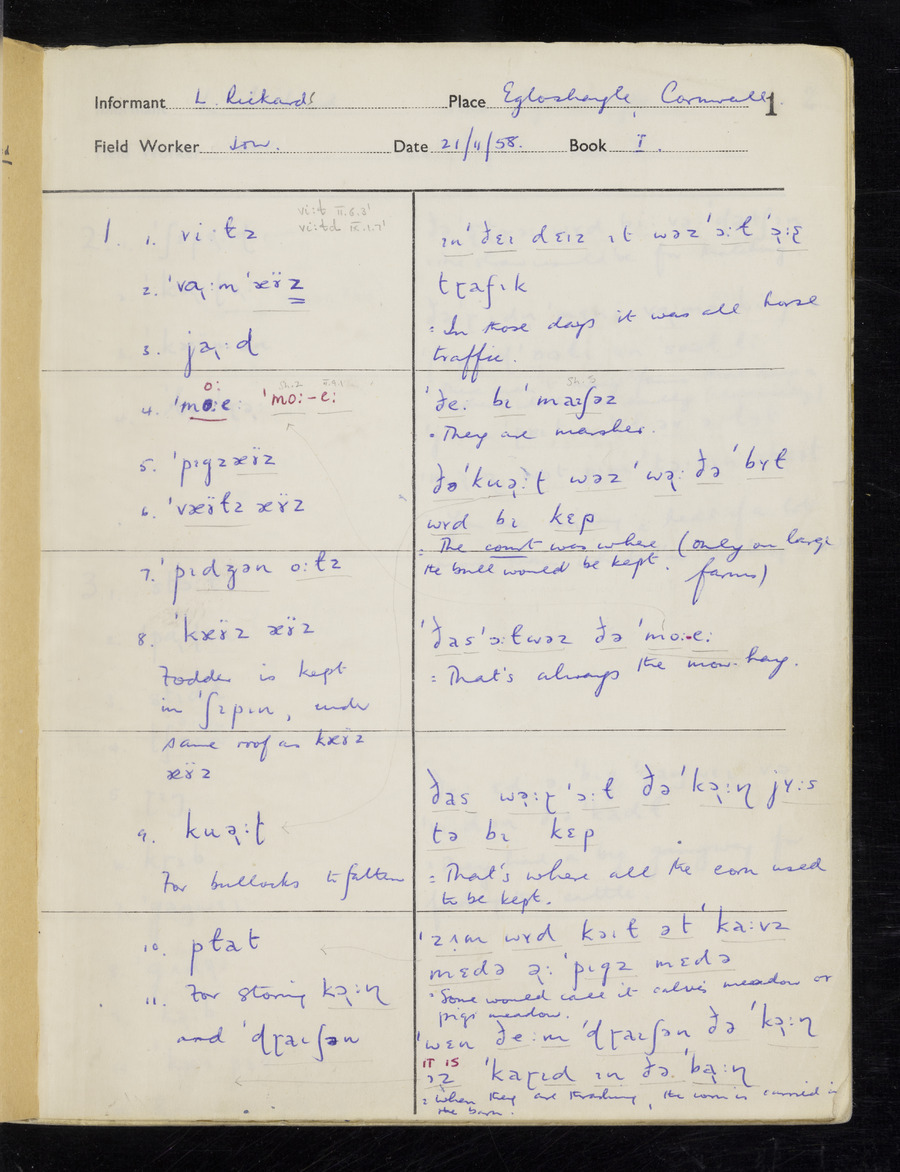 Informant L. Rickards Place Egloshayle, Cornwall 1
Field Worker Date 21/11/58. Book I.
1. 1. viːɫz
viːɫ II.6.3'
viːɫd IX.1.7'
2. ˈvɑ̨ːmˈæɤ̈z
3. jə̨ːd
4. ˈmoːeː oː ˈmoː-eː
Sh.2
5. ˈpɪgzæɤ̈z
6. ˈvæɤ̈ɫz æɤ̈z
7. ˈpɪdʒən oːɫz
8. ˈkæɤ̈z æɤ̈z
Fodder is kept
in ˈʃɪpɪn, under
same roof as kæɤ̈z
æɤ̈z
9. kuə̨ːʈ
For bullocks to fatten
10. pɫat
11. For storing kə̨ːɳ
and ˈdɽaɪʃən
ɪnˈ ðɛɪ dɛɪz ɪt wəzˈɔːɫ ˈɔ̨ːʂ
tɽafɪk
= In those days it was all horse
traffic.
ˈðeː bɪˈmaɪʃəz
Sh.5
= They are marshes.
ðəˈkuə̨ːʈ wəzˈwə̨ː ðəˈbɤɫ
wɤd bɪ kɛp
= The court was where (only on large
the bull would be kept. farms)
ˈðasˈɔːɫwəz ðəˈmoːeː
= That's always the mow-hay.
ðas wə̨ːɽˈɔːɫ ðəˈkə̨ːɳ jʏːs
tə bɪ kɛp
= That's where all the corn used
to be kept.
ˈzʌm wɤd kɔɪɫ ətˈkaːvz
mɛdə ə̨ːˈpɪgz mɛdə
= Some would call it calves meadow or
pigs meadow.
ˈwɛn ðeːmˈdɽaɪʃən ðəˈkə̨ːɳ
IT IS
ɪzˈkaɽɪd ɪn ðəˈbɑ̨ːɳ
= When they are thrashing, the corn is carried in
the barn.